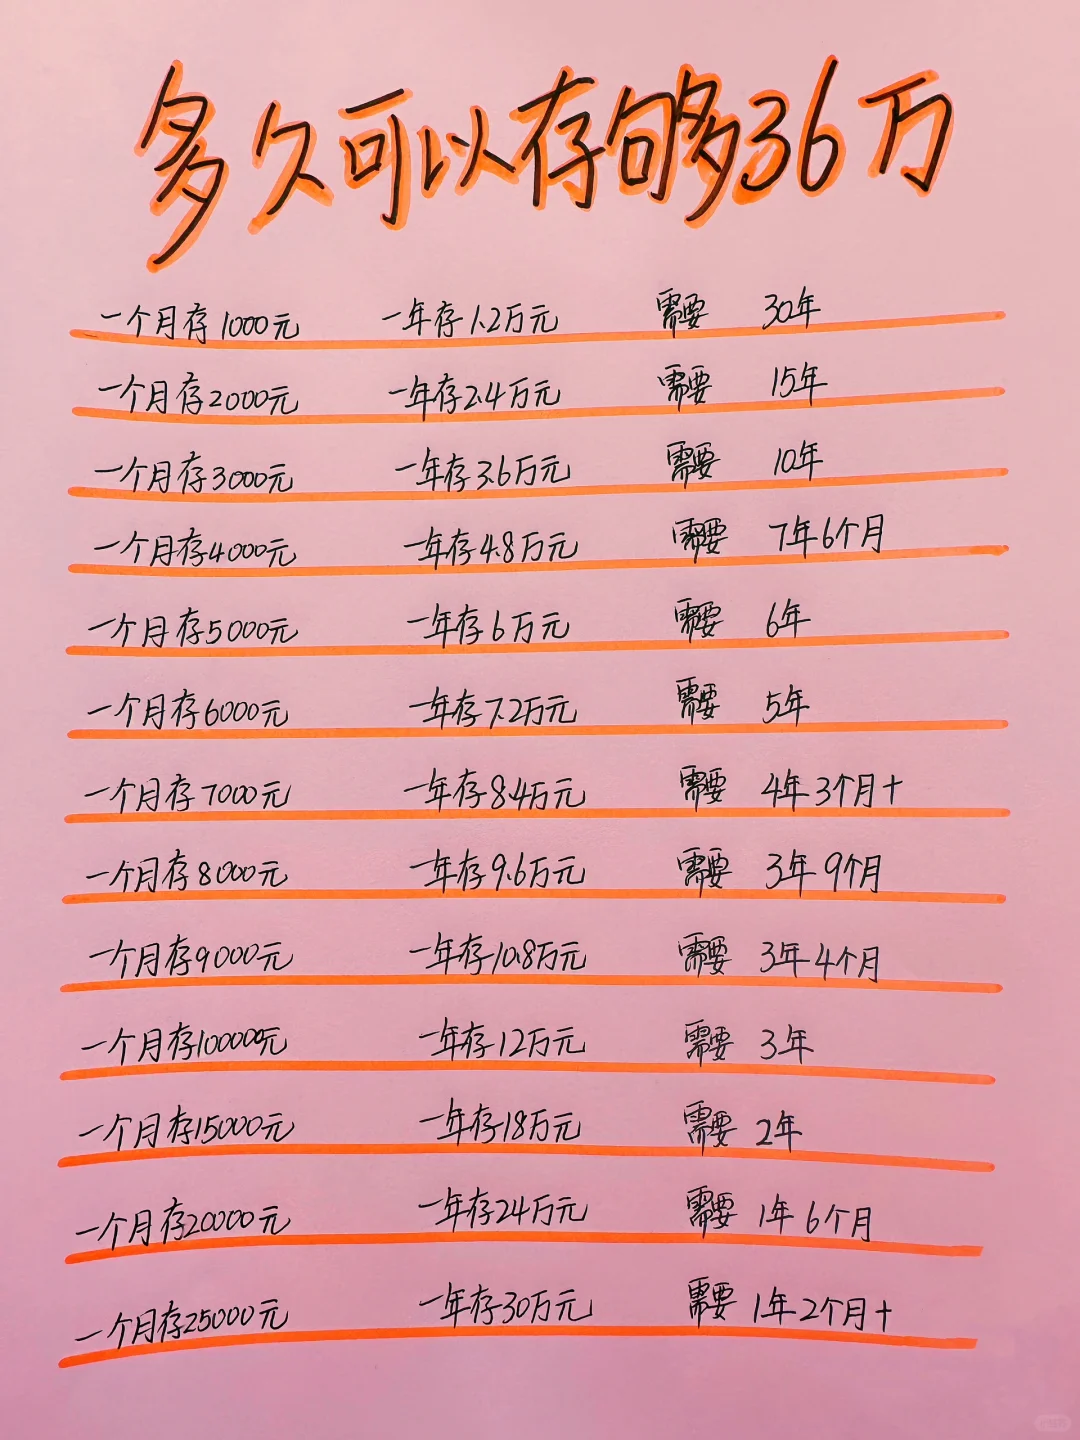 多久可以存够36万
一个月存1000元 一年存1.2万元 需要 30年
一个月存2000元 一年存2.4万元 需要 15年
一个月存3000元 一年存3.6万元 需要 10年
一个月存4000元 一年存4.8万元 需要 7年6个月
一个月存5000元 一年存6万元 需要 6年
一个月存6000元 一年存7.2万元 需要 5年
一个月存7000元 一年存8.4万元 需要 4年3个月+
一个月存8000元 一年存9.6万元 需要 3年9个月
一个月存9000元 一年存10.8万元 需要 3年4个月
一个月存100000元 一年存12万元 需要 3年
一个月存15000元 一年存18万元 需要 2年
一个月存20000元 一年存24万元 需要 1年6个月
一个月存25000元 一年存30万元 需要 1年2个月+